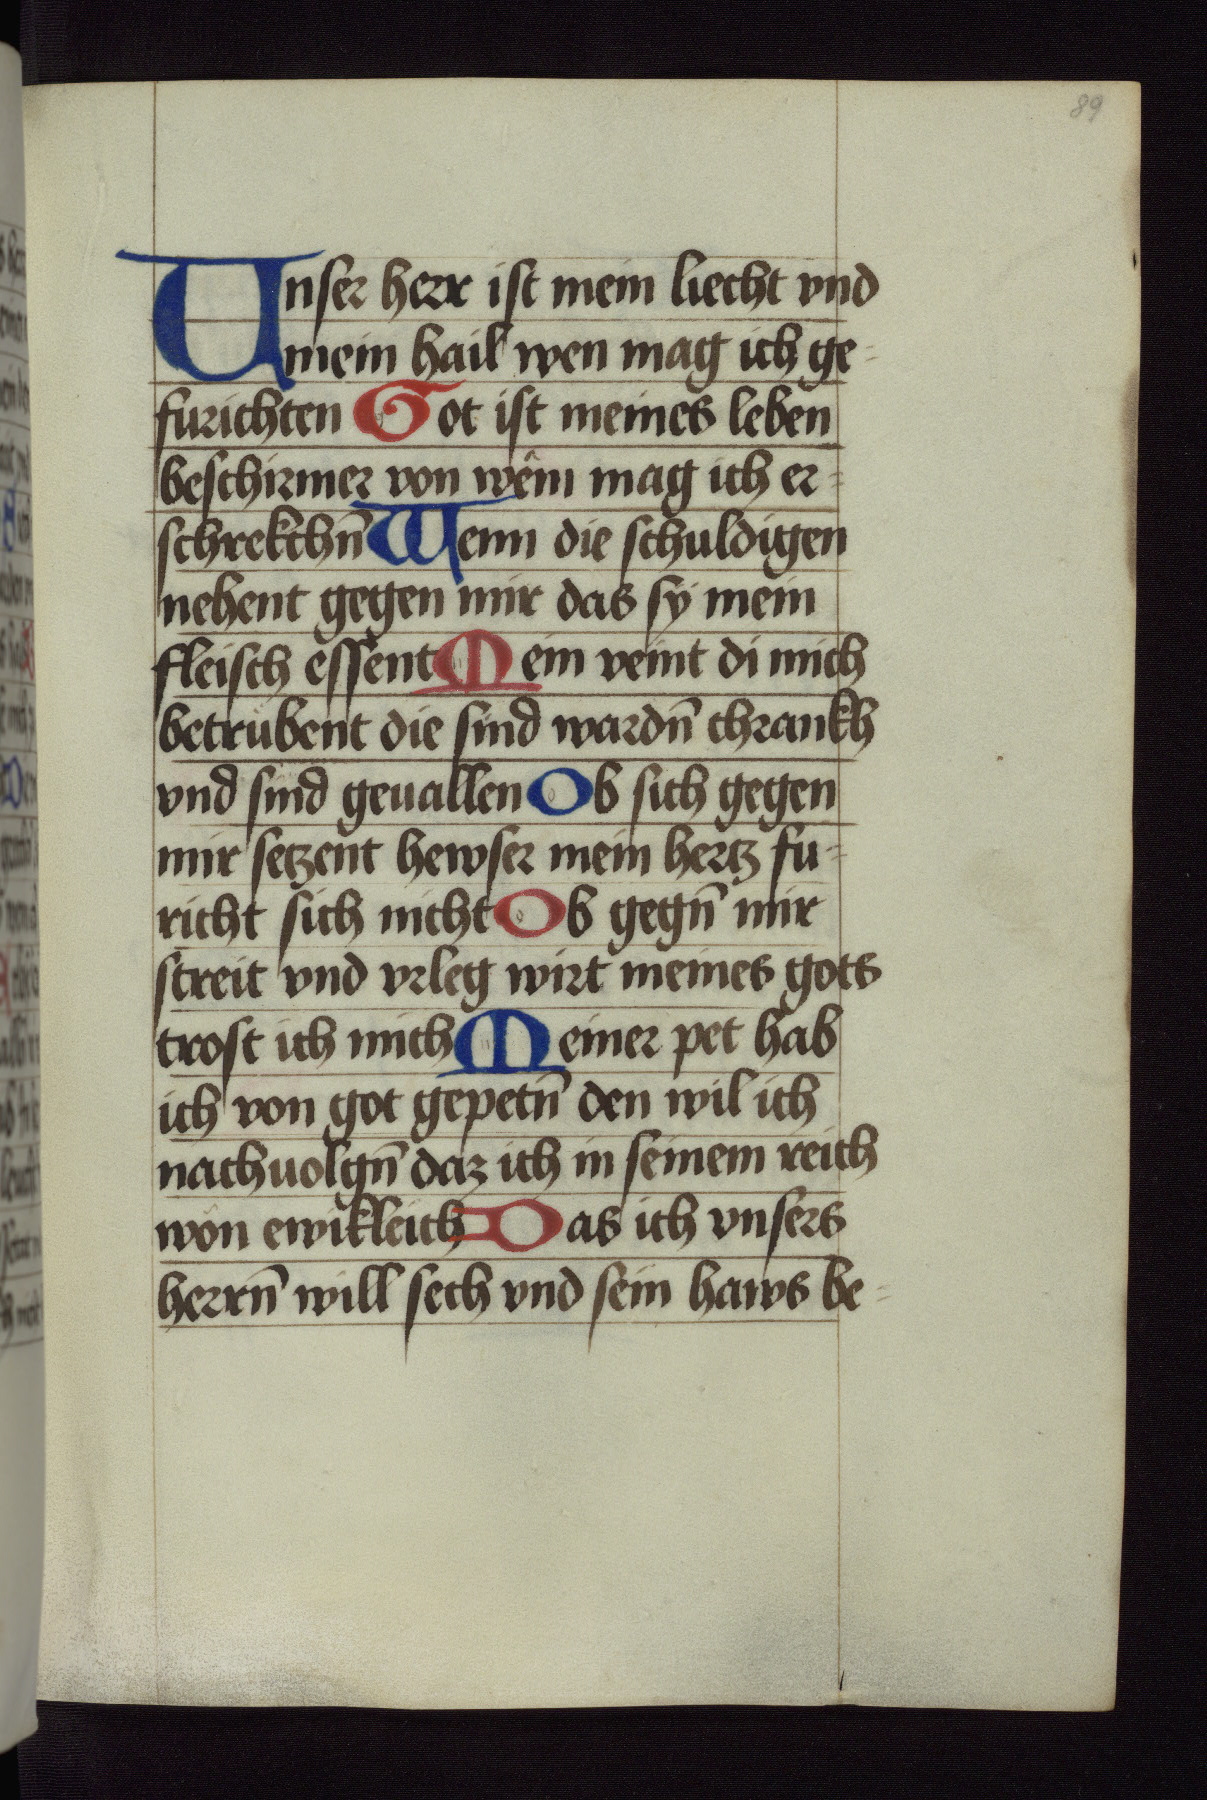 89
Unser herr ist mein liecht vnd
mein hail wen mag ich ge-
furichten Got ist meines leben
beschirmer von wem mag ich er-
schrekchn̄ Wenn die schuldigen
nehent gegen mir das sÿ mein
fleisch essent Mein veint di mich
betrübent die sind wardn̄ chrankh
vnd sind geuallen Ob sich gegen
mir setzent hewser mein hertz fu-
richt sich nicht Ob gegn̄ mir
streit vnd vrleg wirt meines gots
trost ich mich Meiner pet hab
ich von got gepetn̄ den wil ich
nachuolgn̄ daz ich in seinem reich
won ewikleich Das ich vnsers
herrn̄ will sech vnd sein haws be-